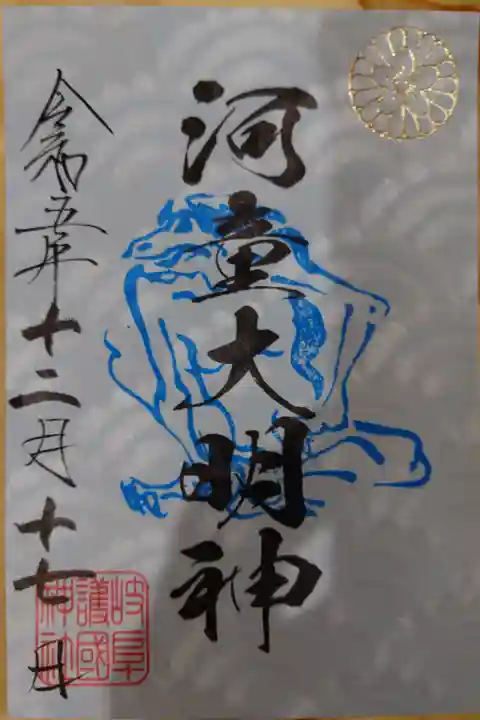 河童大明神
令和五年十二月十七日
岐阜
護國
神社